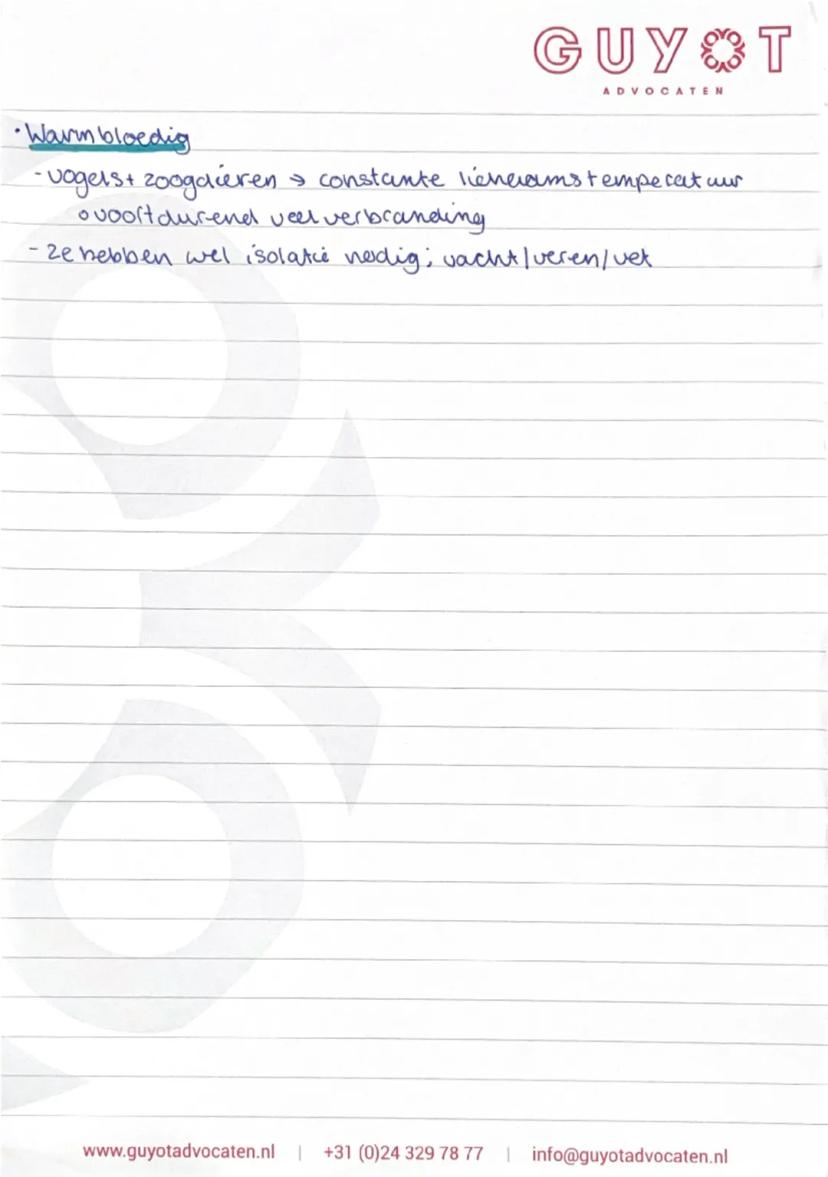 GUYOT
ADVOCATEN
· Warmbloedig
- vogels + zoogdieren → constante lichaamstemperatuur
o voortdurend veel verbranding
- ze hebben wel isolatie nodig; vacht/veren/vet
www.guyotadvocaten.nl | +31 (0)24 329 78 77 | info@guyotadvocaten.nl